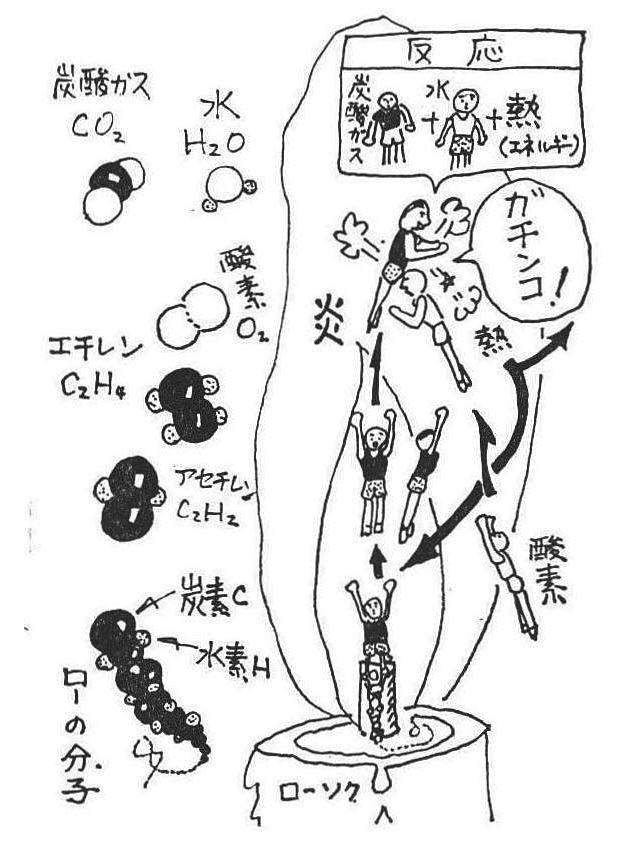 炭酸ガス
CO₂
水
H₂O
酸素
O₂
エチレン
C₂H₄
アセチレン
C₂H₂
炭素C
水素H
ローの分子
反応
炭酸ガス
+
水
+熱
(エネルギー)
ガチンコ!
炎
熱
酸素
ローソク